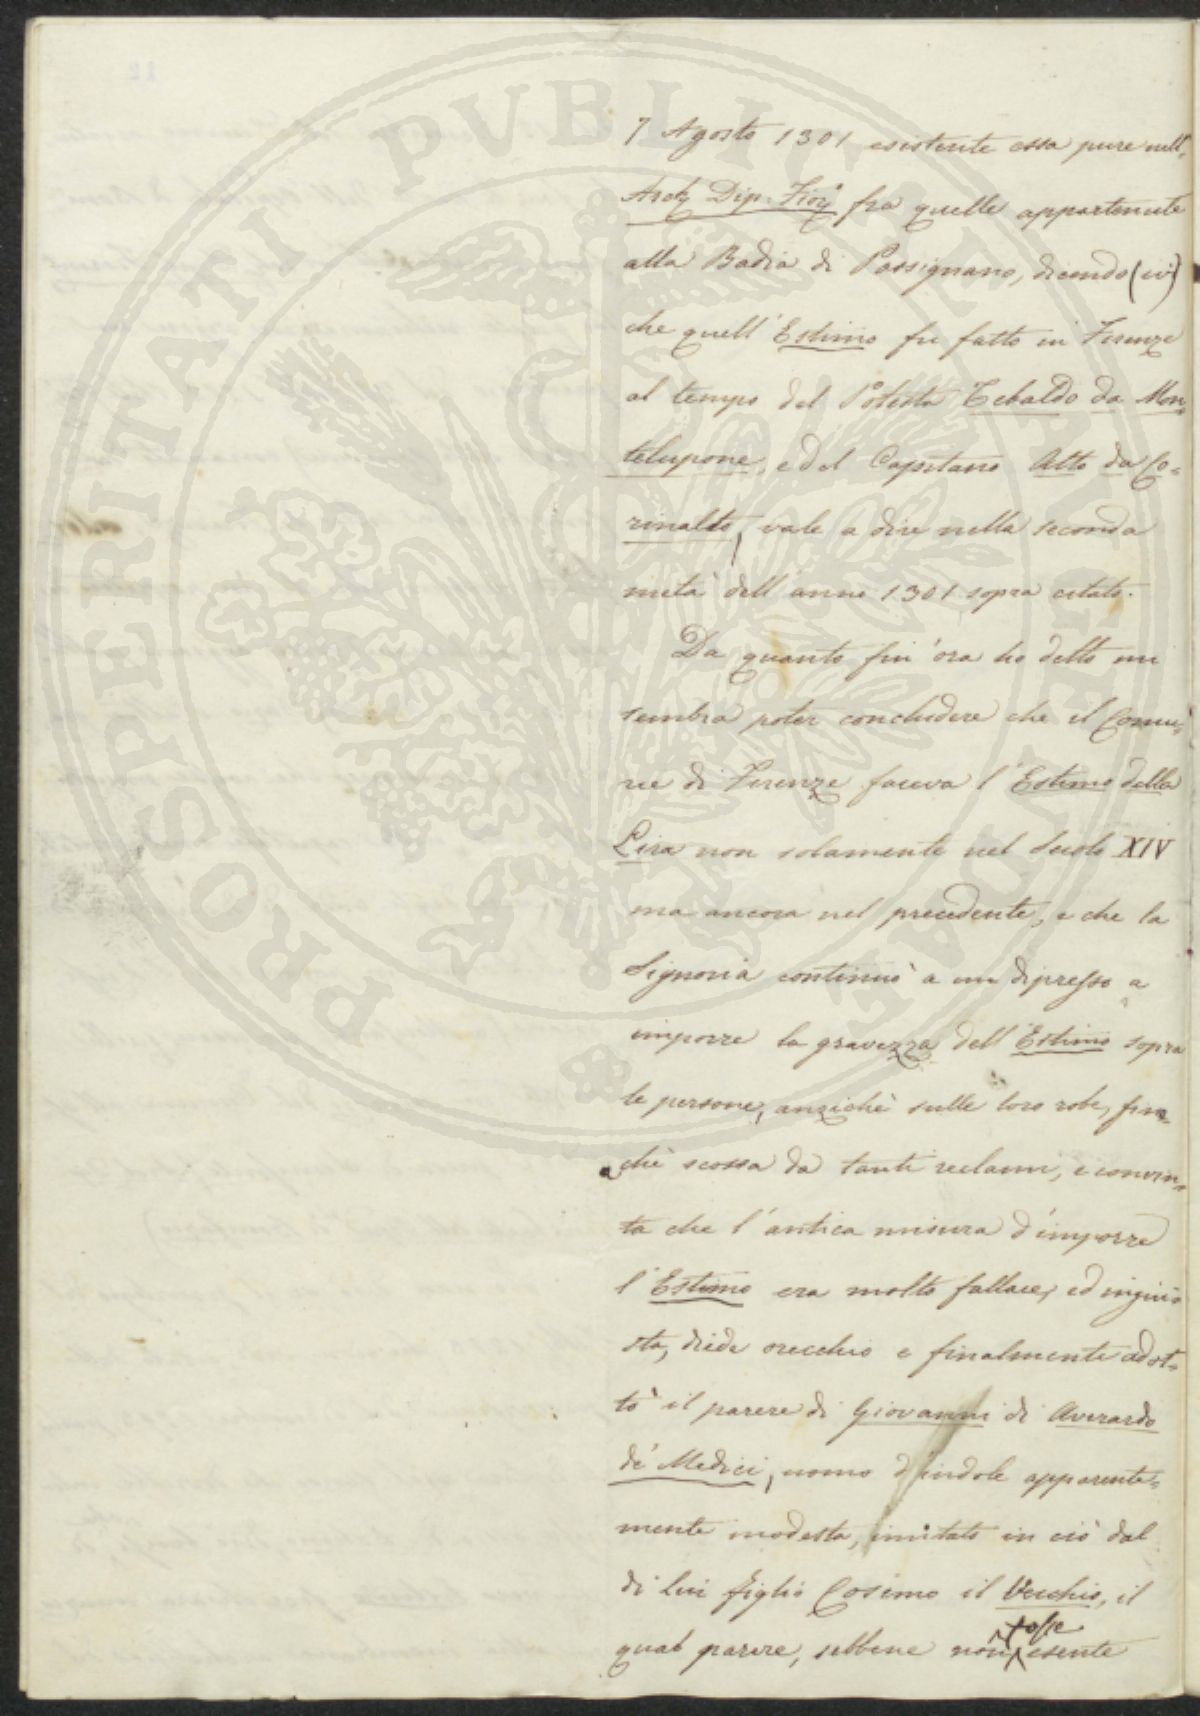 PROSPERITATI PUBLICAE AUGENDAE
7 Agosto 1301 esistente essa pure nell'
Arch. Dip. Fior. fra quelle appartenute
alla Badia di Passignano, dicendo (ivi)
che quell'Estimo fu fatto in Firenze
al tempo del Potestà Tebaldo da Mon-
telupone, e del Capitano Atto da Co-
rinaldo, vale a dire nella seconda
metà dell'anno 1301 sopra citato.
Da quanto fin'ora ho detto mi
sembra poter concludere che il Comu-
ne di Firenze faceva l'Estimo della
Lira non solamente nel Secolo XIV
ma ancora nel precedente, e che la
Signoria continuò a un dipresso a
imporre la gravezza dell'Estimo sopra
le persone, anzichè sulle loro robe, fin-
chè scossa da tanti reclami, e convin-
ta che l'antica misura d'imporre
l'Estimo era molto fallace, ed ingiu-
sta, diede orecchio e finalmente adot-
tò il parere di Giovanni di Averardo
de' Medici, uomo d'indole apparente-
mente modesta, imitato in ciò dal
di lui figlio Cosimo il Vecchio, il
fosse
qual parere, sebbene non esente